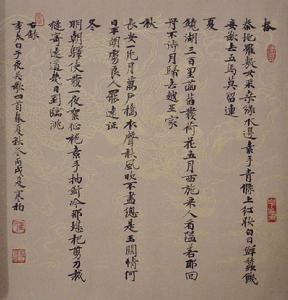 春
秦地羅敷女采桑綠水邊素手青條上紅妝白日鮮蠶飢
妾欲去五馬莫留連
夏
鏡湖三百里菡萏發荷花五月西施采人看隘若耶回
舟不待月歸去越王家
秋
長安一片月萬戶擣衣聲秋風吹不盡總是玉關情何
日平胡虜良人罷遠征
冬
明朝驛使發一夜絮征袍素手抽針冷那堪把剪刀裁
縫寄遠道幾日到臨洮
右錄
李太白子夜吳歌四首春夏秋冬丙戌夏寒柏